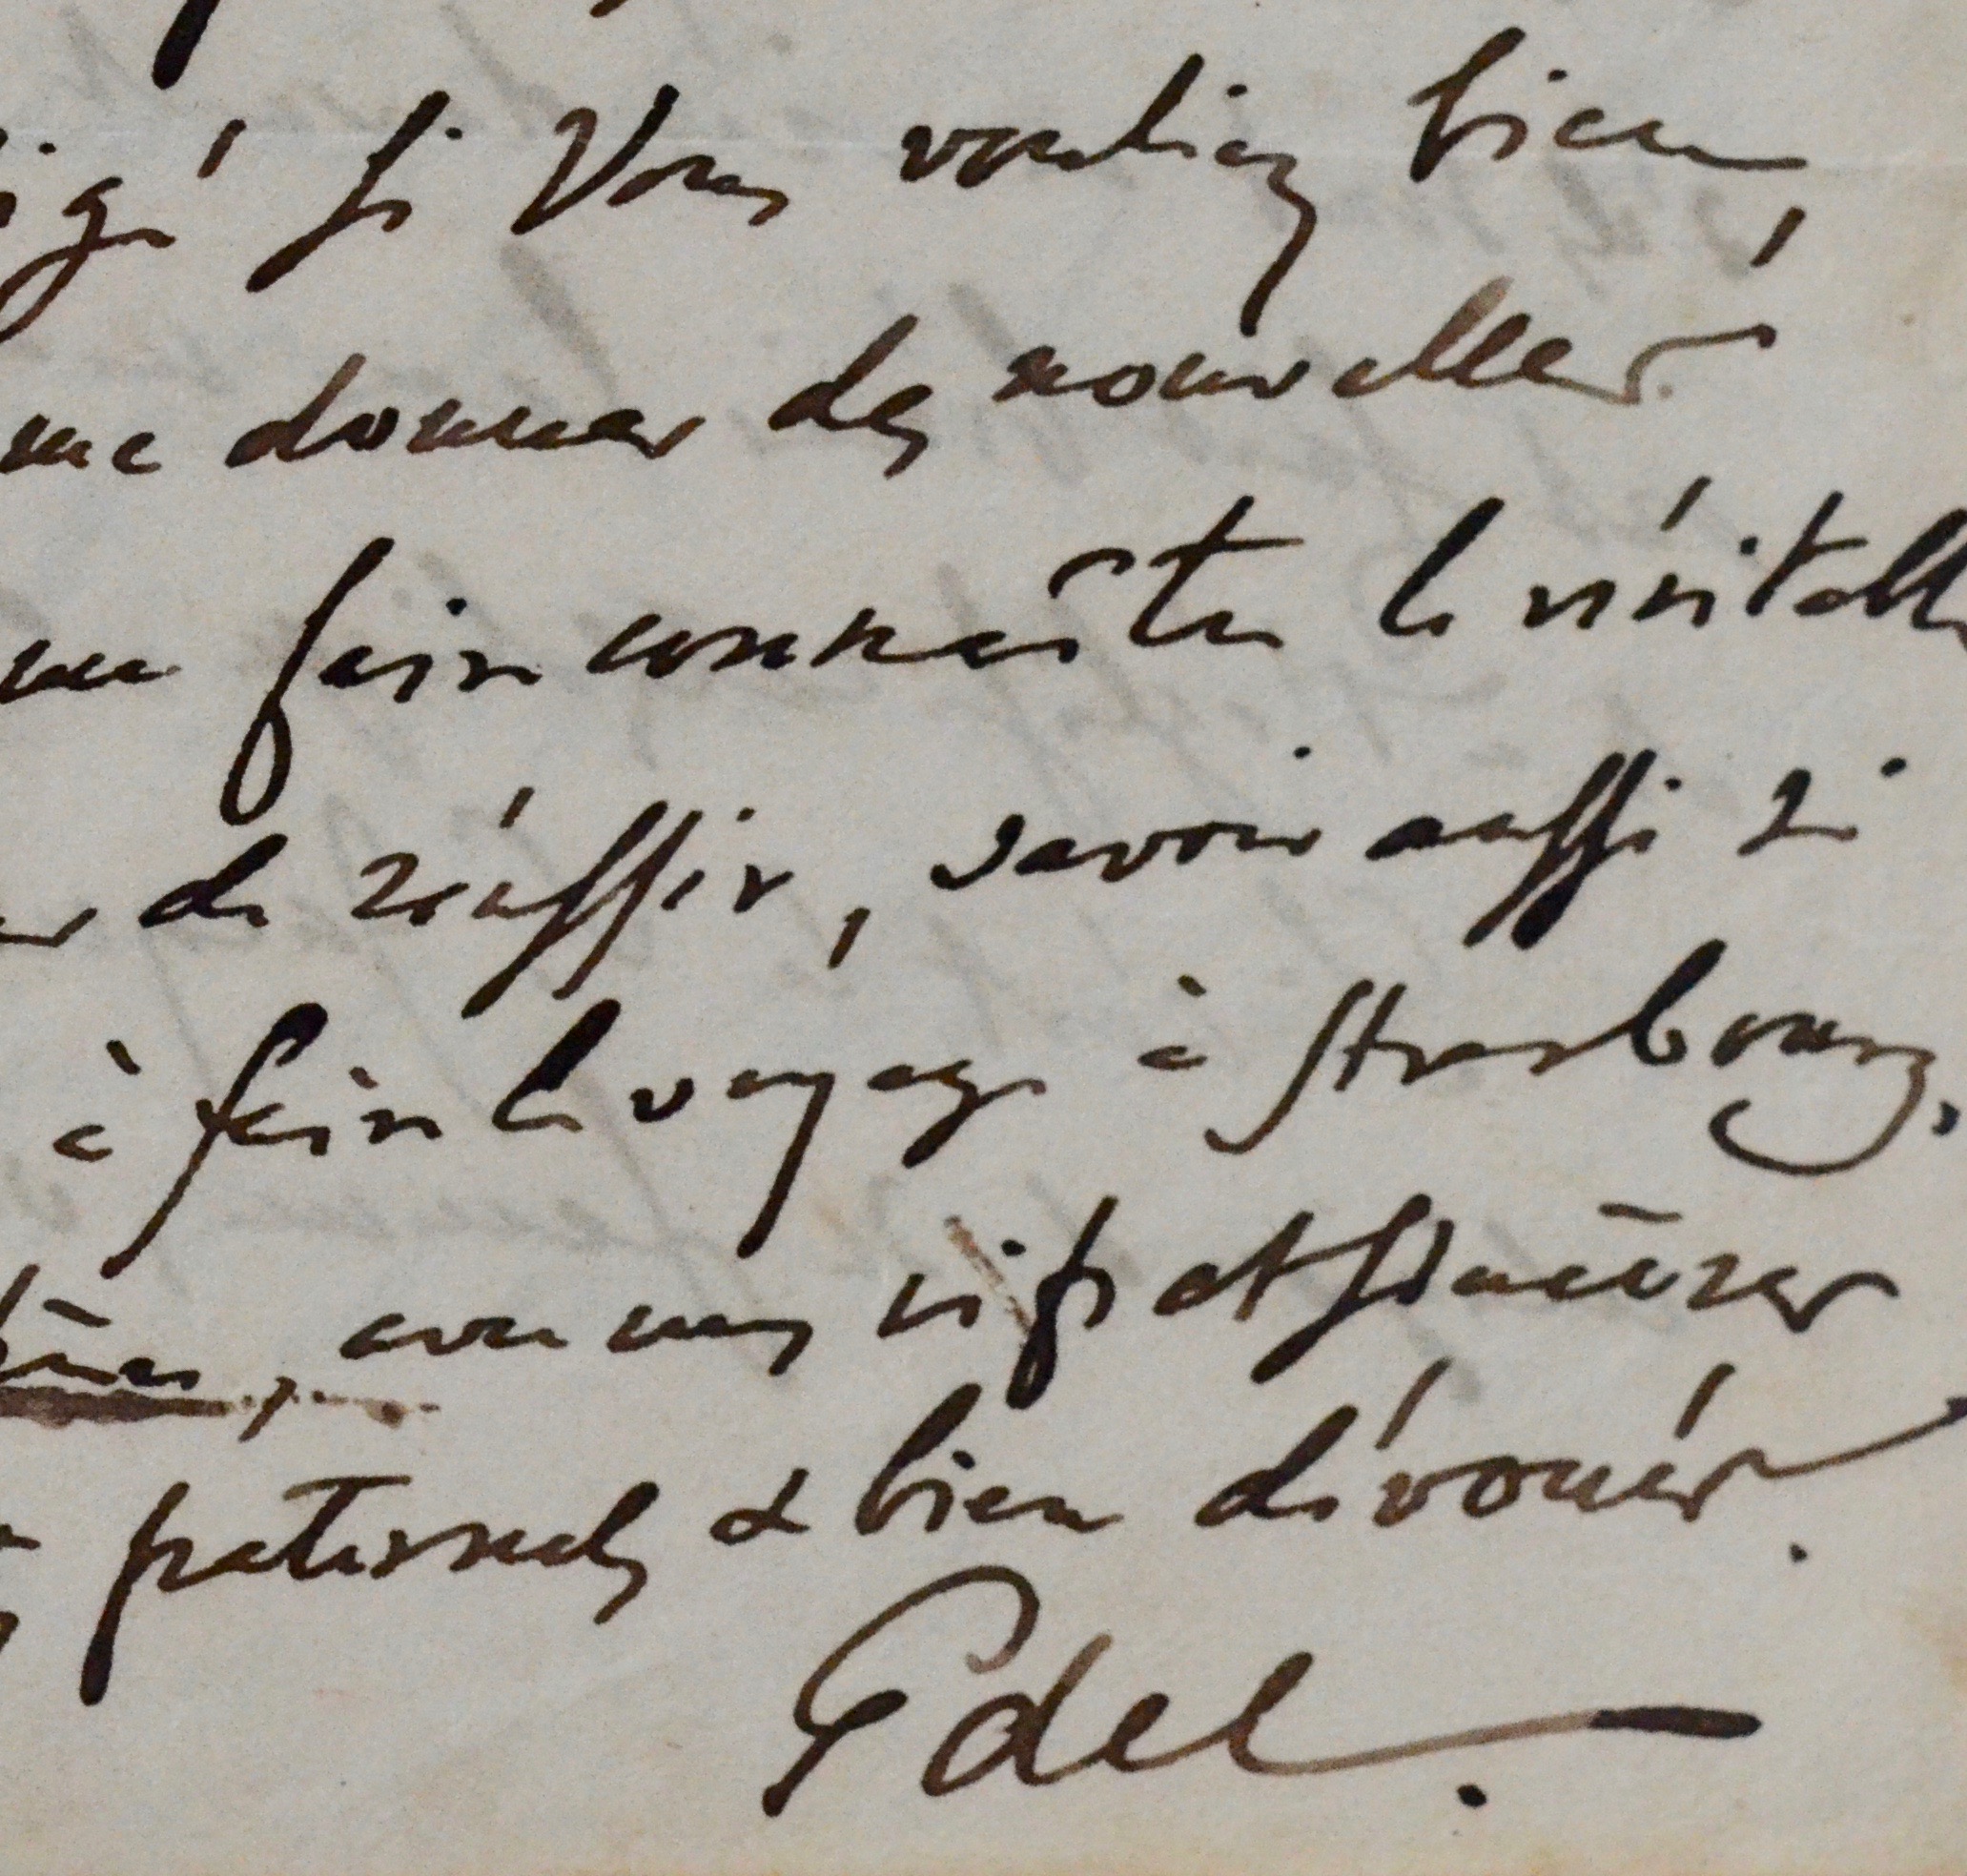 igé si Vous vouliez bien
me donner des nouvelles
me faire connaître le véritable
de réussir, savoir aussi si
à faire le voyage à Strasbourg.
, avec mes vifs et sincères
fraternels & bien dévoués.
Edel.